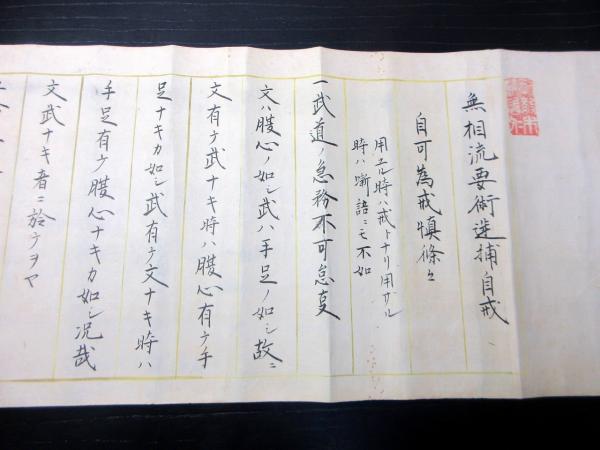 無相流要術逆捕自戒
自可為戒慎條々
用ユル時ハ戒トナリ用ザル
時ハ噺語ニモ不如
一武道ノ急務不可怠事
文ハ腹心ノ如シ武ハ手足ノ如シ故ニ
文有テ武ナキ時ハ腹心有テ手
足ナキカ如シ武有テ文ナキ時ハ
手足有テ腹心ナキカ如シ況哉
文武ナキ者ニ於テヲヤ